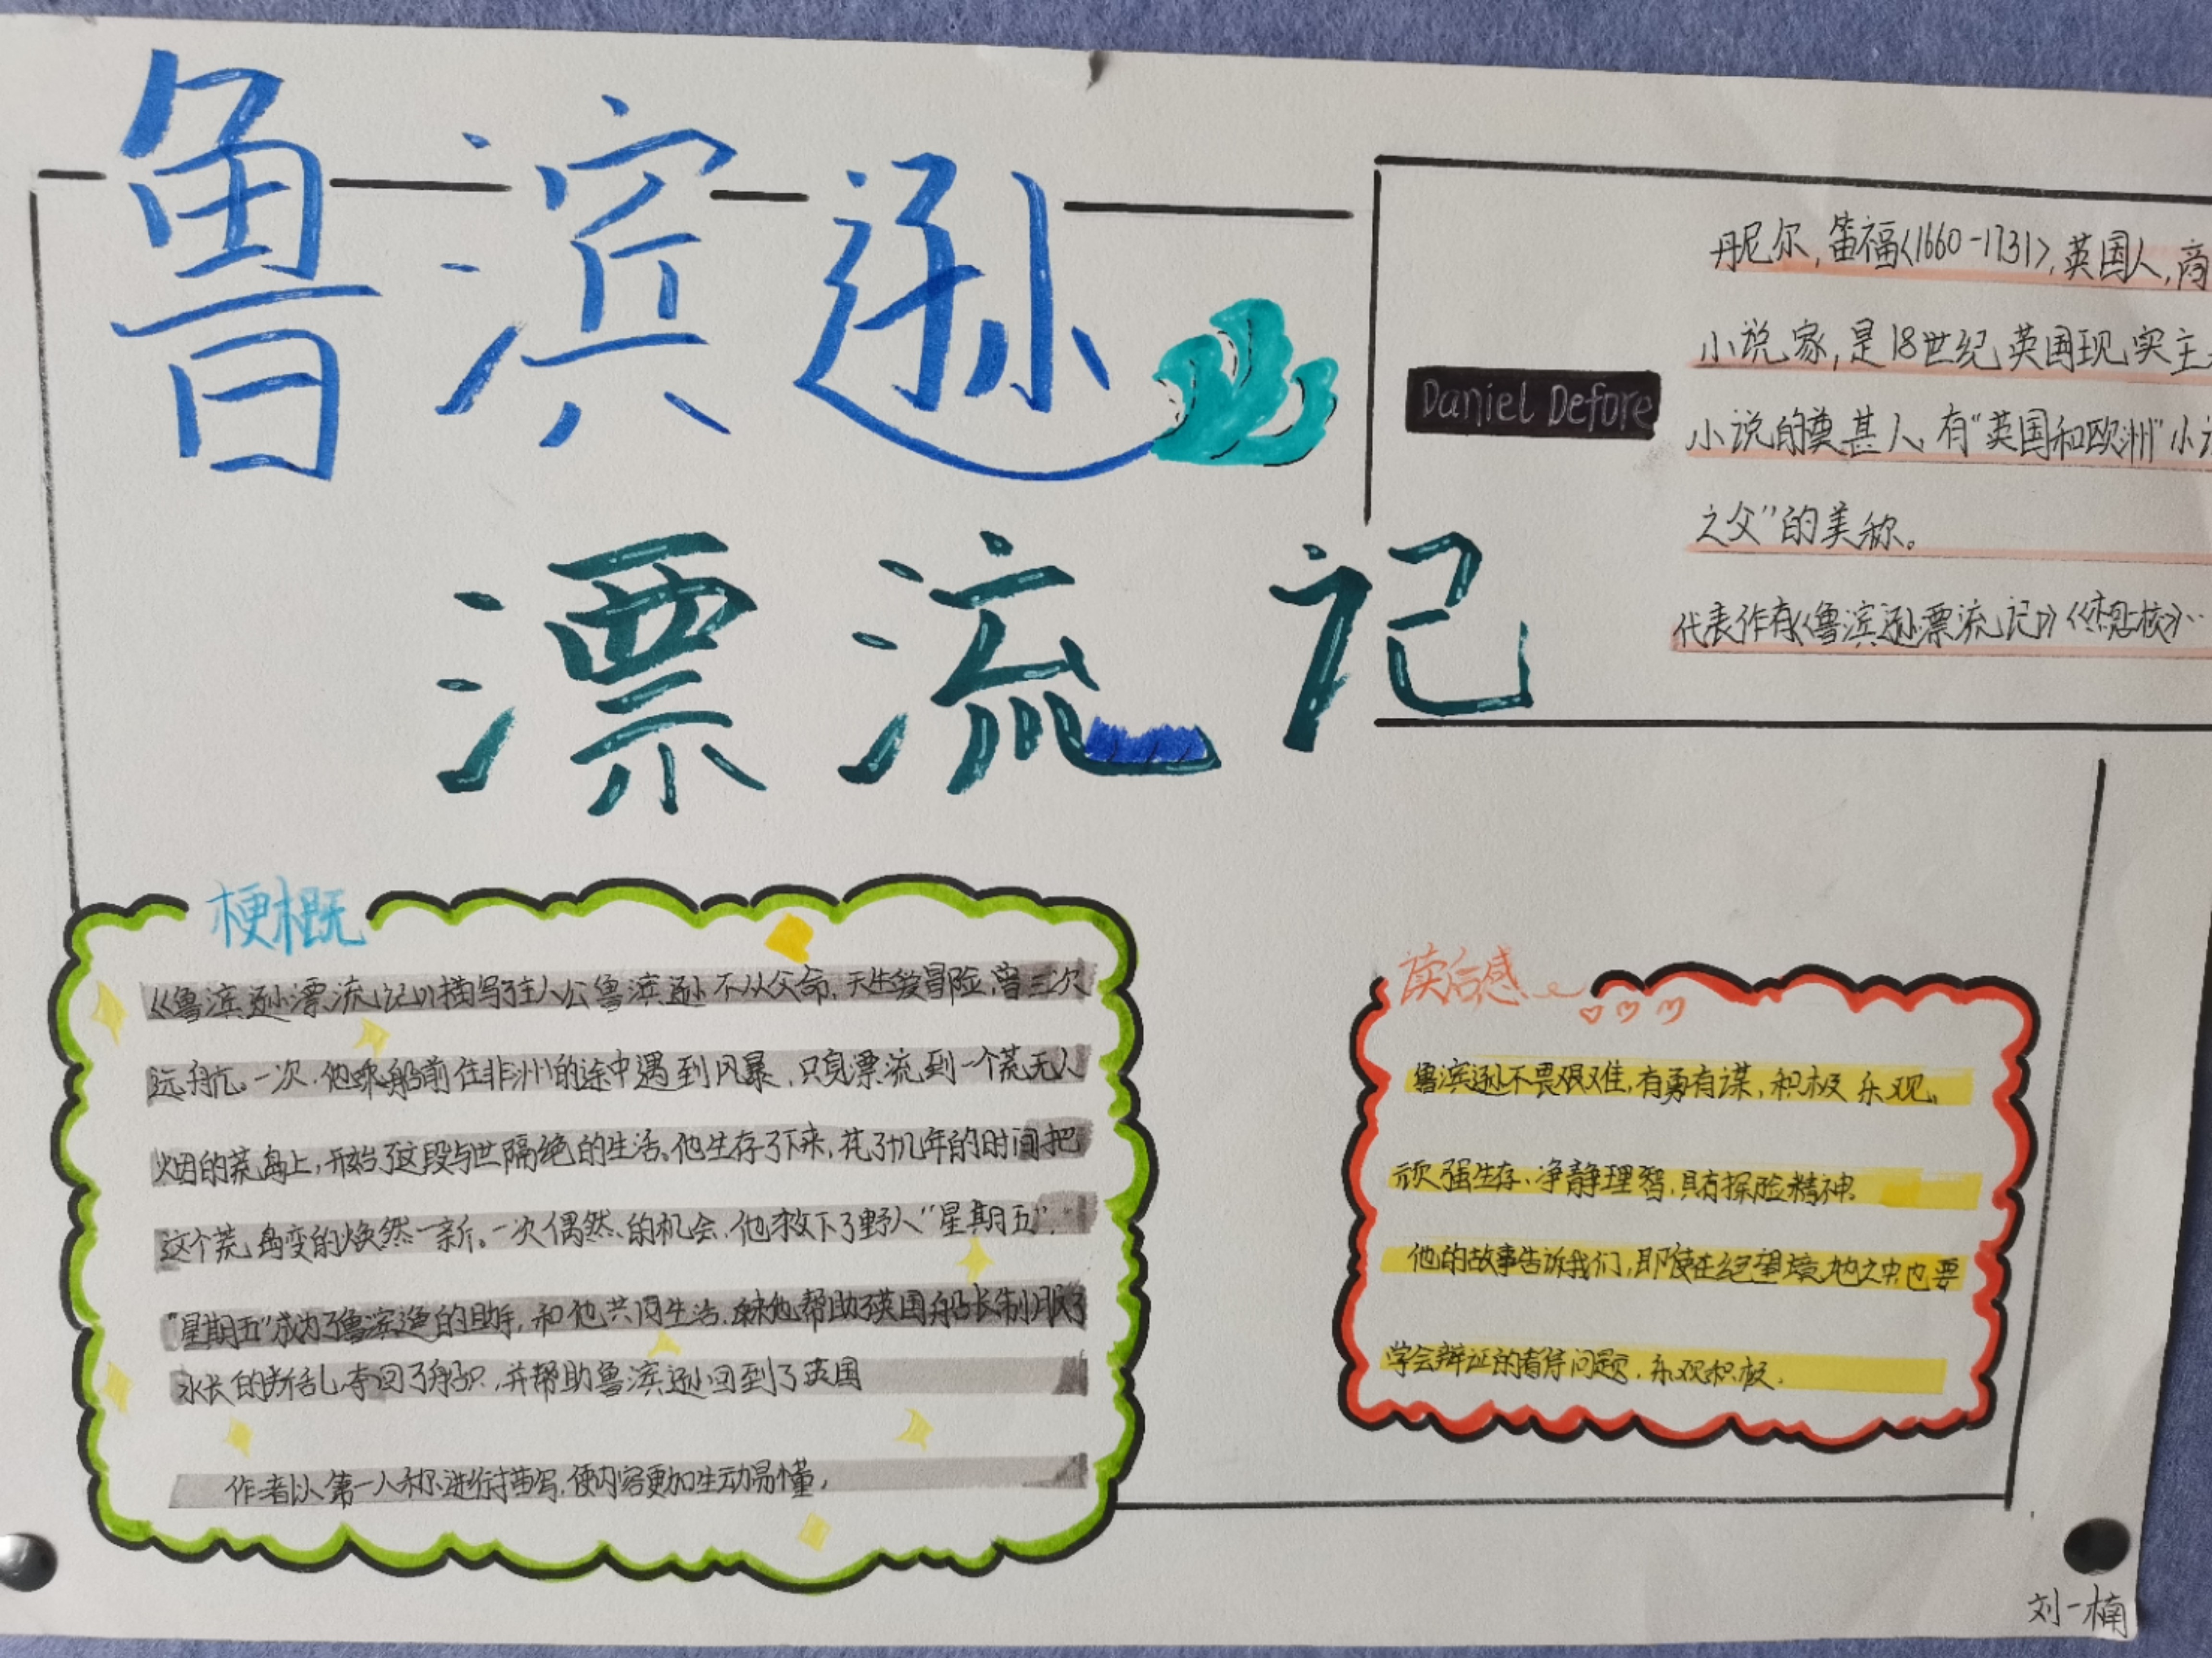 鲁滨逊
漂流记
丹尼尔,笛福<1660-1731>,英国人,商
小说家,是18世纪英国现实主
Daniel Defore
小说的奠基人,有“英国和欧洲”小说
之父”的美称。
代表作有《鲁滨逊漂流记》
梗概
《鲁滨逊漂流记》描写主人公鲁滨逊不从父命,天生爱冒险,曾三次
远航。一次,他乘船前往非洲的途中遇到风暴,只身漂流到一个荒无人
烟的荒岛上,开始了这段与世隔绝的生活。他生存了下来,花了十几年的时间把
这个荒岛变的焕然一新。一次偶然的机会,他救下了野人“星期五”.
“星期五”成为了鲁滨逊的助手,和他共同生活.他帮助了英国船长制服了
水长的叛乱,夺回了船只,并帮助鲁滨逊回到了英国
作者以第一人称进行描写,使内容更加生动易懂,
读后感
鲁滨逊不畏艰难,有勇有谋,积极乐观,
顽强生存、净静理智,具有探险精神.
他的故事告诉我们,即使在绝望境地之中也要
学会辩证的看待问题,乐观积极.
刘一楠